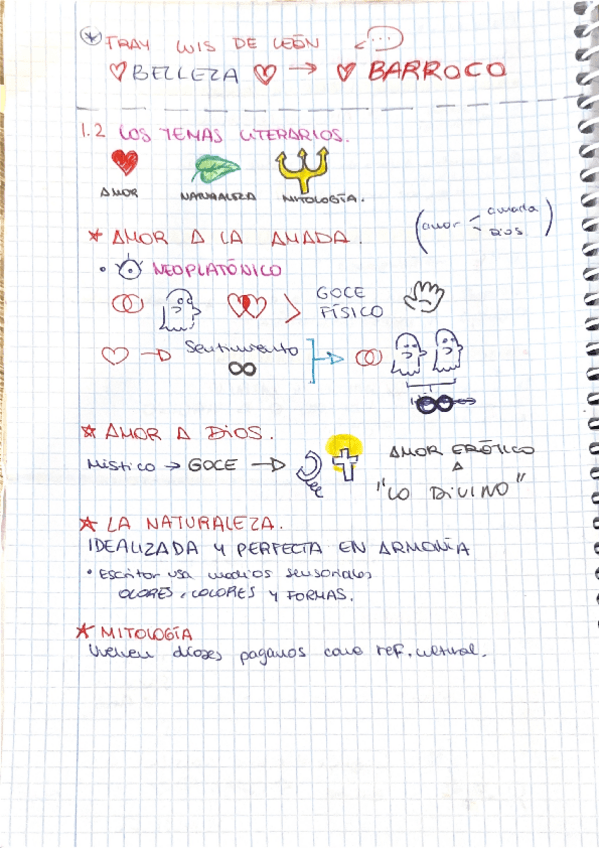 * FRAY LUIS DE LEÓN
♡ BELLEZA ♡ → ♡ BARROCO
1.2 LOS TEMAS LITERARIOS.
AMOR NATURALEZA MITOLOGÍA.
* AMOR A LA AMADA.
(amor < amada
Dios)
• NEOPLATÓNICO
GOCE
FÍSICO
♡ → Sentimiento
∞
* AMOR A DIOS.
Místico → GOCE →
AMOR ERÓTICO
A
"LO DIVINO"
* LA NATURALEZA.
IDEALIZADA Y PERFECTA EN ARMONÍA
• Escritor usa medios sensoriales
OLORES, COLORES Y FORMAS.
* MITOLOGÍA
Vuelven dioses paganos como ref. cultural.